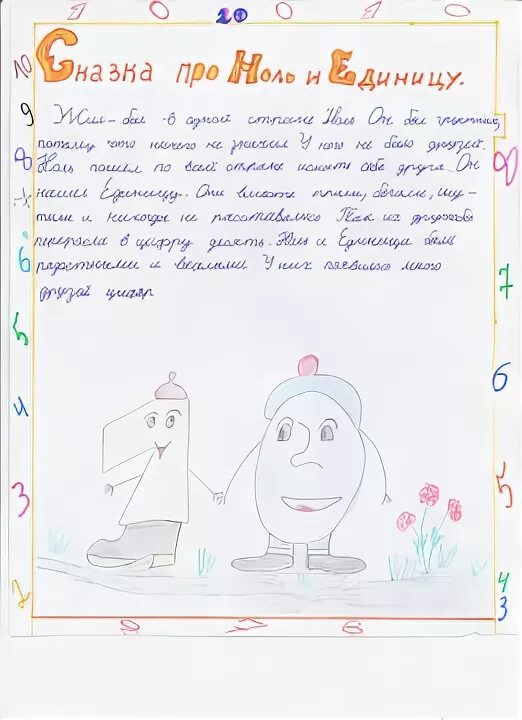 10 20 10
Сказка про Ноль и Единицу.
Жил-был в одной стране Ноль Он был грустный,
потому что ничего не значил У него не было друзей.
Ноль пошел по всей стране искать себе друга. Он
нашел Единицу. Они вместе бегали, шу-
тили и никогда не расставались Так их дружба
переросла в цифру десять. Ноль и Единица были
радостными и веселыми У них появилось много
друзей цифр
10
9
8
6
5
4
3
2
7
6
5
4
3